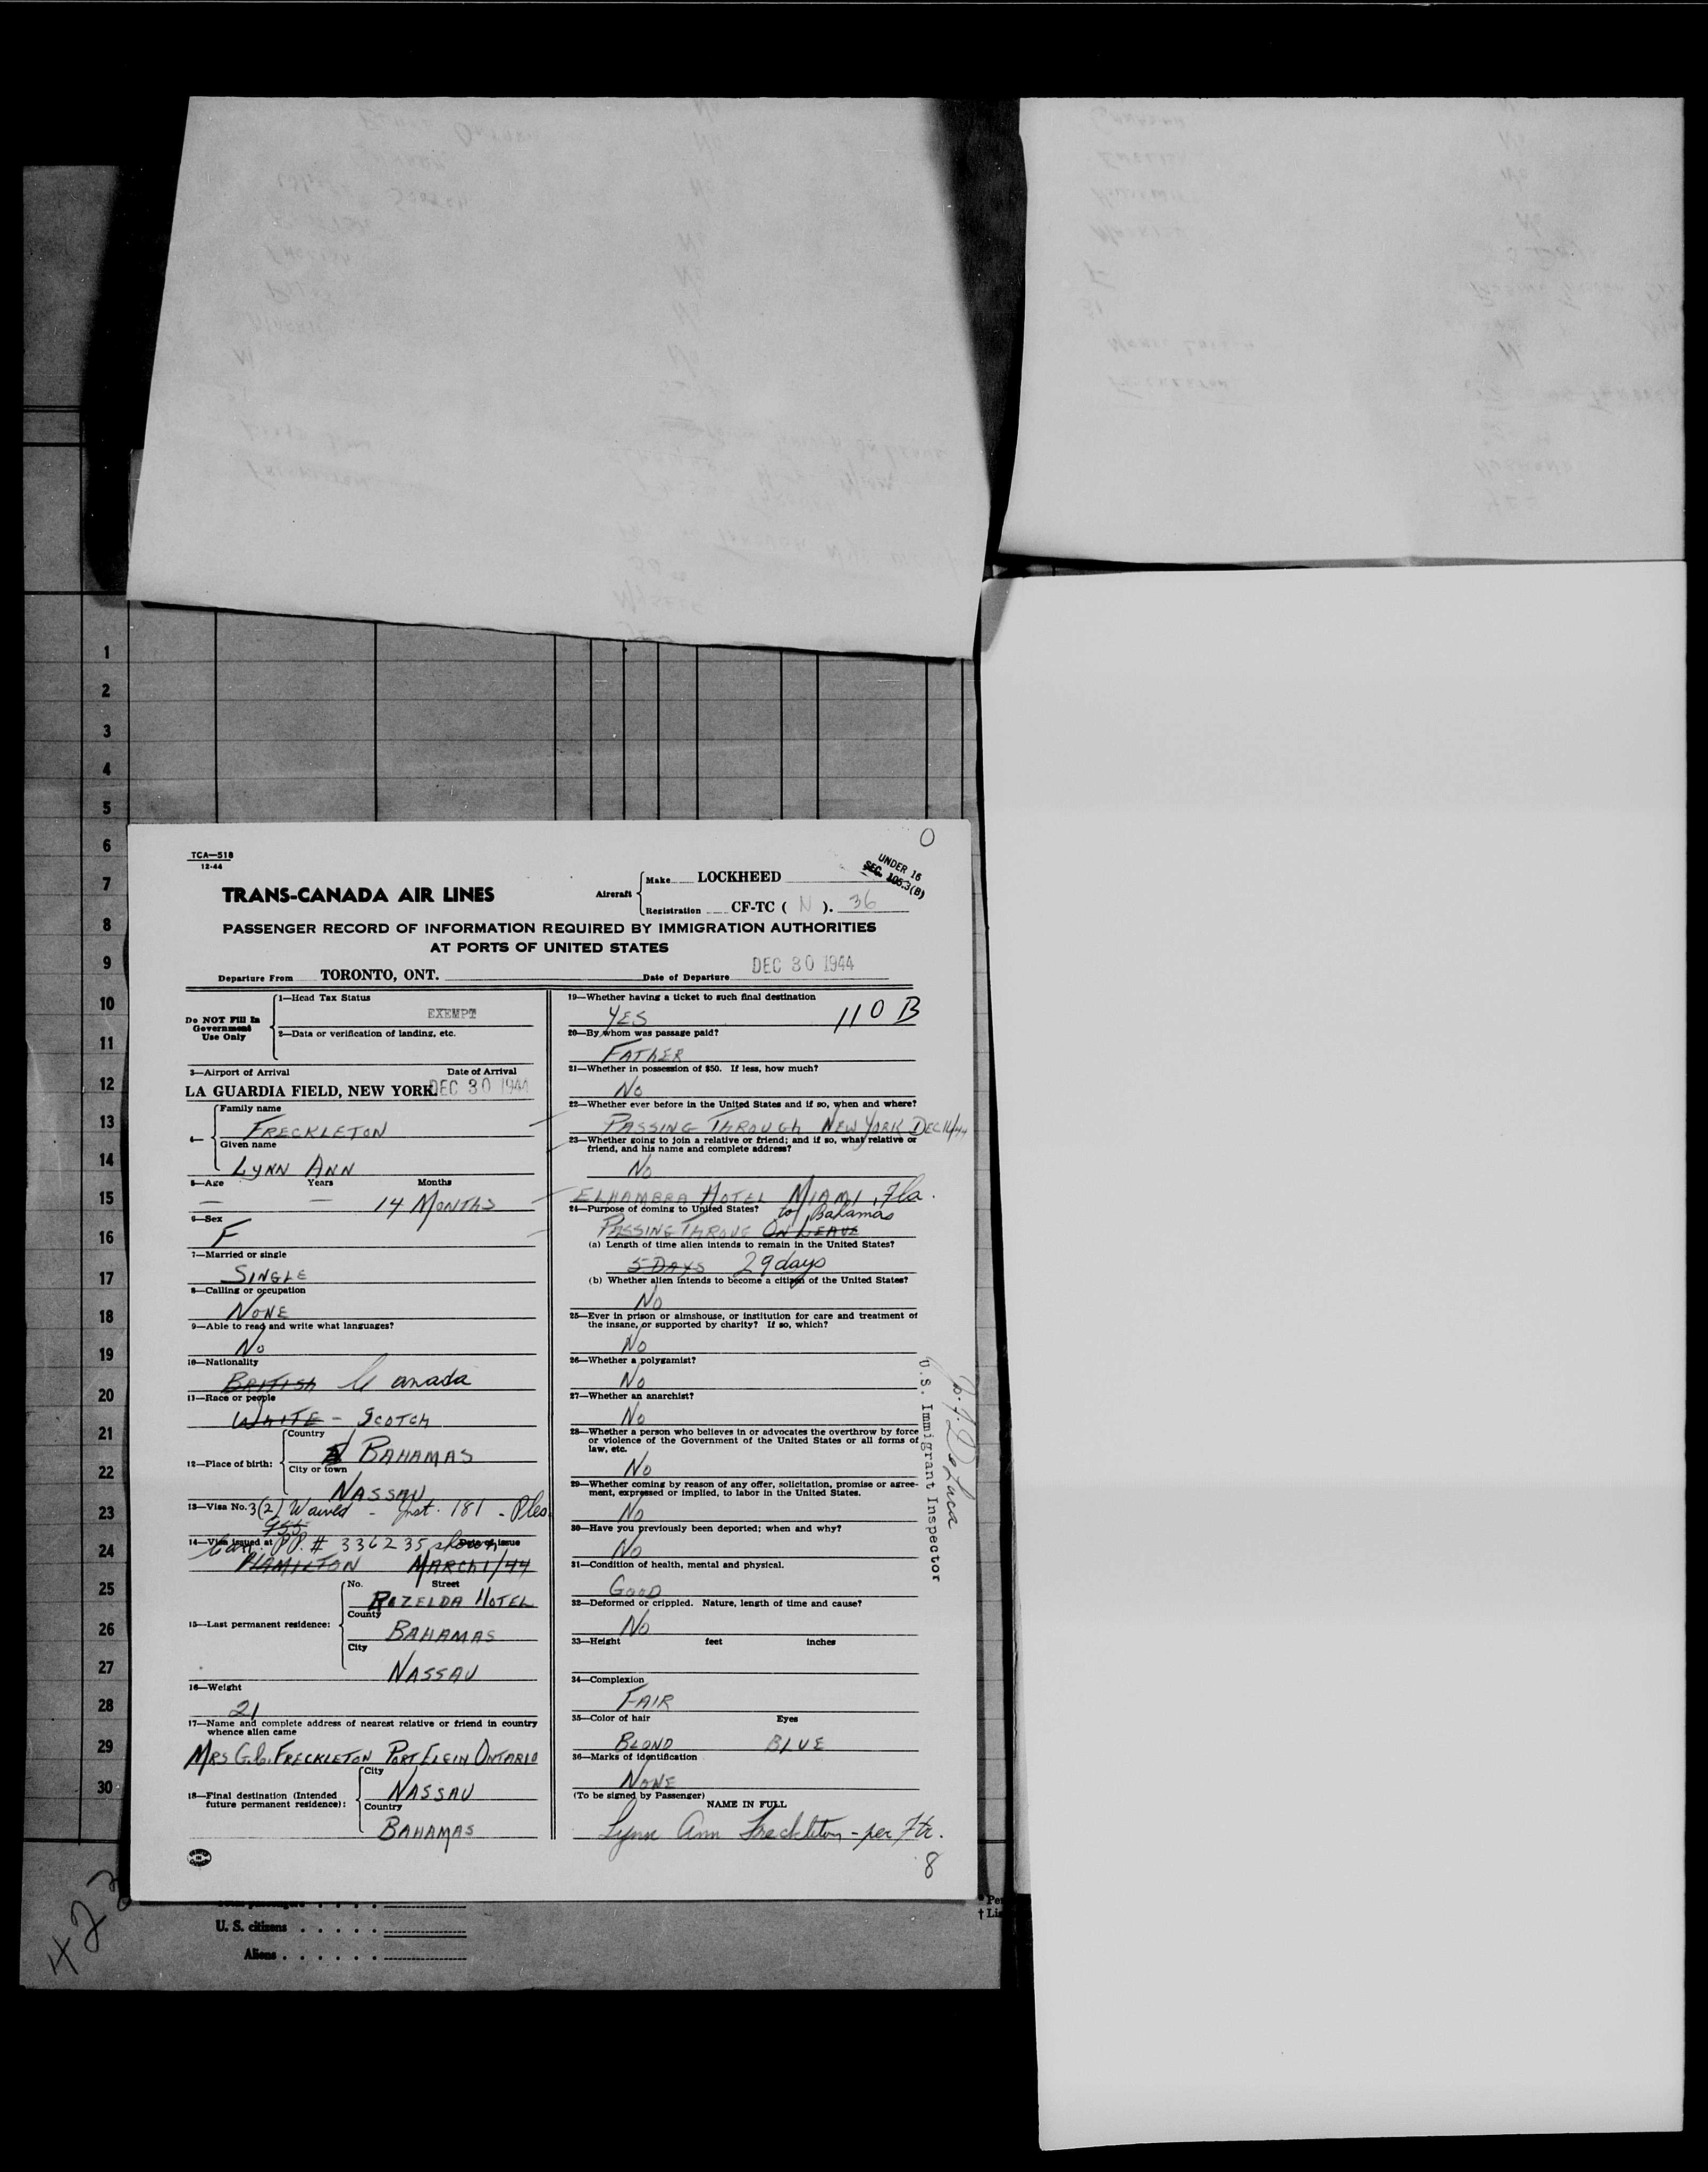 1
2
3
4
5
6
7
8
9
10
11
12
13
14
15
16
17
18
19
20
21
22
23
24
25
26
27
28
29
30
O
TCA—518
12-44
UNDER 16
SEC. 105.3(B)
TRANS-CANADA AIR LINES
Aircraft
Make LOCKHEED
Registration CF-TC ( N ). 36
PASSENGER RECORD OF INFORMATION REQUIRED BY IMMIGRATION AUTHORITIES
AT PORTS OF UNITED STATES
Departure From TORONTO, ONT. Date of Departure DEC 30 1944
Do NOT Fill In
Government
Use Only
1—Head Tax Status
EXEMPT
2—Data or verification of landing, etc.
3—Airport of Arrival Date of Arrival
LA GUARDIA FIELD, NEW YORK. DEC 30 1944
4—
Family name
FRECKLETON
Given name
LYNN ANN
5—Age Years Months
— — 14 MONTHS
6—Sex
F
7—Married or single
SINGLE
8—Calling or occupation
NONE
9—Able to read and write what languages?
No
10—Nationality
BRITISH Canada
11—Race or people
WHITE - SCOTCH
12—Place of birth:
Country
BAHAMAS
City or town
NASSAU
13—Visa No. 3(2) Waived - Inst. 181 -
14—Visa issued at Date of issue
Can. PP. # 336235 shown
HAMILTON MARCH 1/44
15—Last permanent residence:
No. Street
ROZELDA HOTEL
County
BAHAMAS
City
NASSAU
16—Weight
21
17—Name and complete address of nearest relative or friend in country
whence alien came
MRS G.C. FRECKLETON PORT ELGIN ONTARIO
18—Final destination (Intended
future permanent residence):
City
NASSAU
Country
BAHAMAS
19—Whether having a ticket to such final destination
YES 110 B
20—By whom was passage paid?
FATHER
21—Whether in possession of $50. If less, how much?
No
22—Whether ever before in the United States and if so, when and where?
PASSING THROUGH NEW YORK DEC 16/44
23—Whether going to join a relative or friend; and if so, what relative or
friend, and his name and complete address?
No
ELHAMBRA HOTEL MIAMI, Fla.
24—Purpose of coming to United States? to Bahamas
PASSING THROUG ON LEAVE
(a) Length of time alien intends to remain in the United States?
5 DAYS 29 days
(b) Whether alien intends to become a citizen of the United States?
No
25—Ever in prison or almshouse, or institution for care and treatment of
the insane, or supported by charity? If so, which?
No
26—Whether a polygamist?
No
27—Whether an anarchist?
No
28—Whether a person who believes in or advocates the overthrow by force
or violence of the Government of the United States or all forms of
law, etc.
No
29—Whether coming by reason of any offer, solicitation, promise or agree-
ment, expressed or implied, to labor in the United States.
No
30—Have you previously been deported; when and why?
No
31—Condition of health, mental and physical.
GOOD
32—Deformed or crippled. Nature, length of time and cause?
No
33—Height feet inches
34—Complexion
FAIR
35—Color of hair Eyes
BLOND BLUE
36—Marks of identification
NONE
(To be signed by Passenger)
NAME IN FULL
Lynn Ann Freckleton - per Ftr.
8
U.S. Immigrant Inspector
U. S. citizens
Aliens